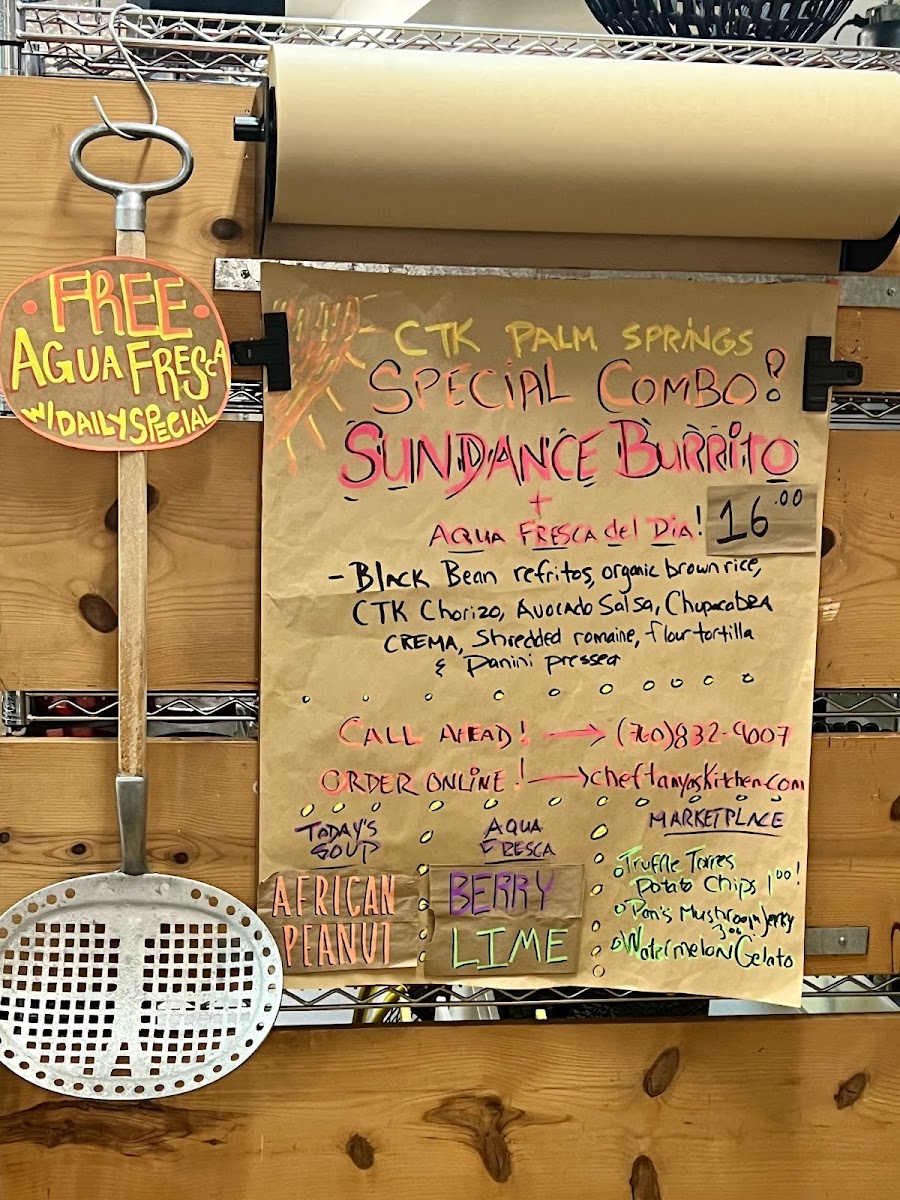 FREE
AGUA FRESCA
W/ DAILY SPECIAL
CTK PALM SPRINGS
SPECIAL COMBO!
SUNDANCE BURRITO
+
AQUA FRESCA del DIA! 16.00
- BLACK Bean refritos, organic brown rice,
CTK Chorizo, Avocado Salsa, Chupacabra
CREMA, Shredded romaine, flour tortilla
& Panini pressed
CALL AHEAD! → (760)832-9007
ORDER ONLINE! → cheftanyaskitchen.com
TODAY'S
SOUP
AFRICAN
PEANUT
AQUA
FRESCA
BERRY
LIME
MARKETPLACE
Truffle Torres
Potato Chips 1.00!
Pan's Mushroom Jerky
3.00
Watermelon Gelato